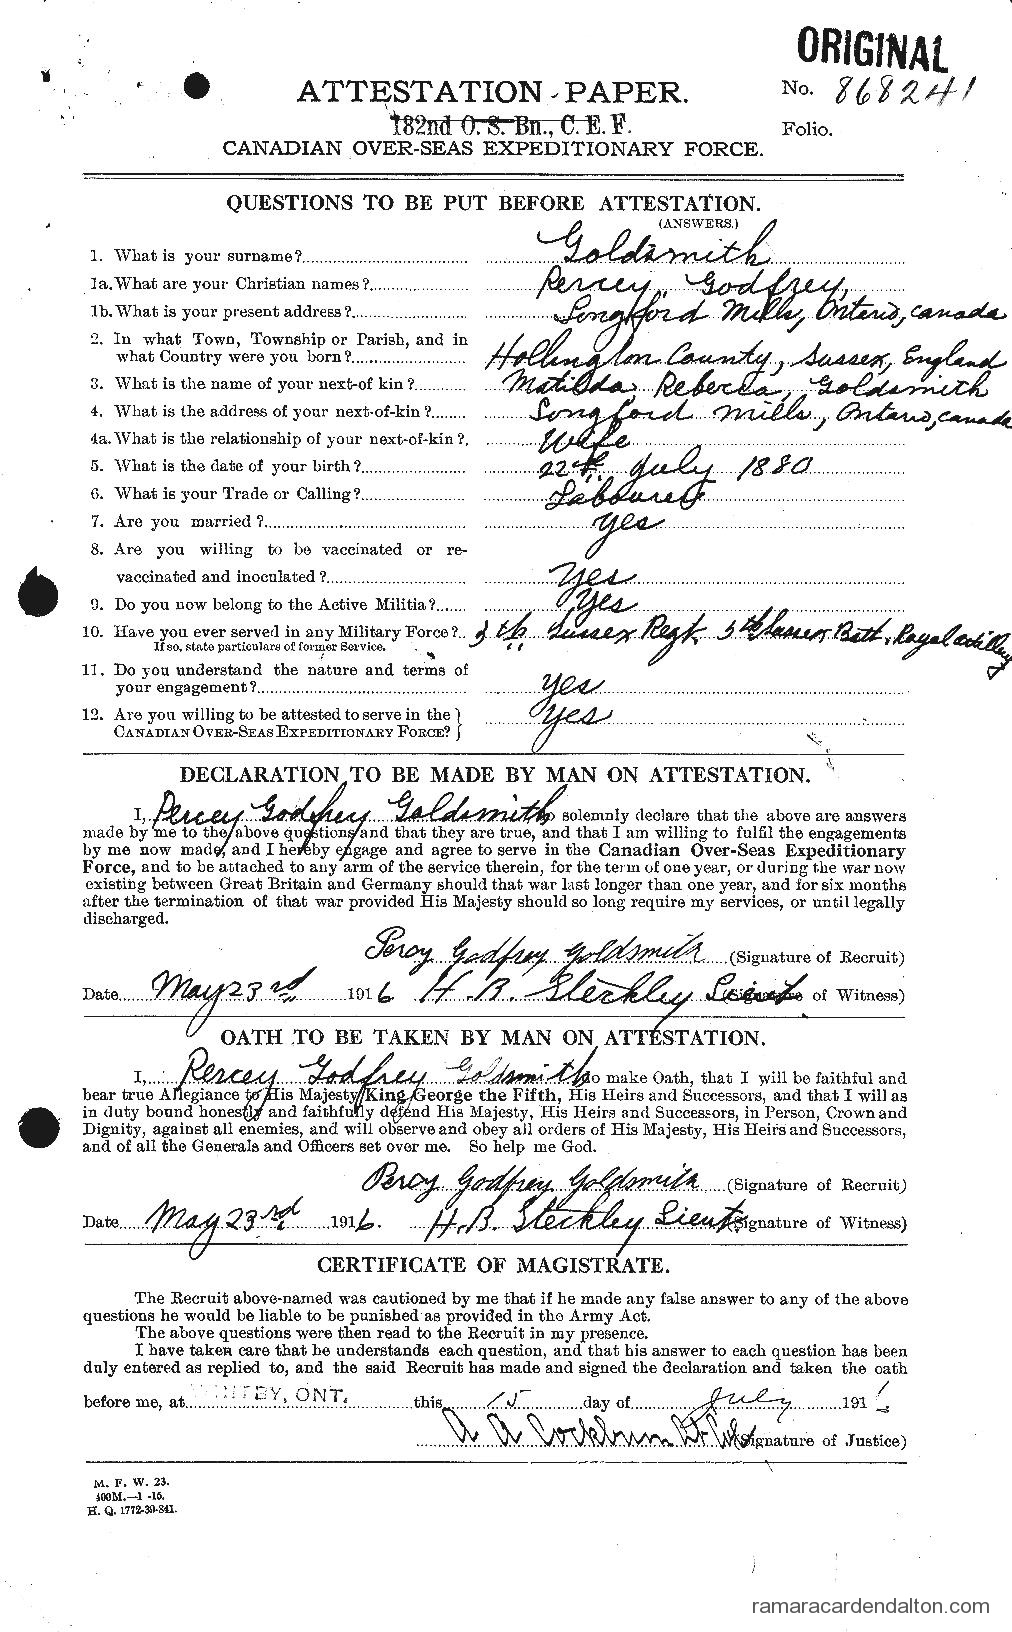 ORIGINAL
ATTESTATION PAPER.
No. 868241
182nd O. S. Bn., C. E. F.
Folio.
CANADIAN OVER-SEAS EXPEDITIONARY FORCE.
QUESTIONS TO BE PUT BEFORE ATTESTATION.
(ANSWERS.)
1. What is your surname? Goldsmith
1a. What are your Christian names? Percey, Godfrey,
1b. What is your present address? Longford Mills, Ontario, Canada
2. In what Town, Township or Parish, and in
what Country were you born? Hollington County, Sussex, England
3. What is the name of your next-of kin? Matilda, Rebecca, Goldsmith
4. What is the address of your next-of-kin? Longford Mills, Ontario, Canada
4a. What is the relationship of your next-of-kin? Wife
5. What is the date of your birth? 22nd July 1880
6. What is your Trade or Calling? Labourer
7. Are you married? Yes
8. Are you willing to be vaccinated or re-
vaccinated and inoculated? Yes
9. Do you now belong to the Active Militia? Yes
10. Have you ever served in any Military Force? Sussex Regt. 5th Sussex Batt. Royal artillery
If so, state particulars of former Service.
11. Do you understand the nature and terms of
your engagement? Yes
12. Are you willing to be attested to serve in the
CANADIAN OVER-SEAS EXPEDITIONARY FORCE? Yes
DECLARATION TO BE MADE BY MAN ON ATTESTATION.
I, Percey Godfrey Goldsmith, solemnly declare that the above are answers
made by me to the above questions and that they are true, and that I am willing to fulfil the engagements
by me now made, and I hereby engage and agree to serve in the Canadian Over-Seas Expeditionary
Force, and to be attached to any arm of the service therein, for the term of one year, or during the war now
existing between Great Britain and Germany should that war last longer than one year, and for six months
after the termination of that war provided His Majesty should so long require my services, or until legally
discharged.
Percy Godfrey Goldsmith (Signature of Recruit)
Date May 23rd 1916 H. B. Steckley Lieut. (Signature of Witness)
OATH TO BE TAKEN BY MAN ON ATTESTATION.
I, Percey Godfrey Goldsmith do make Oath, that I will be faithful and
bear true Allegiance to His Majesty King George the Fifth, His Heirs and Successors, and that I will as
in duty bound honestly and faithfully defend His Majesty, His Heirs and Successors, in Person, Crown and
Dignity, against all enemies, and will observe and obey all orders of His Majesty, His Heirs and Successors,
and of all the Generals and Officers set over me. So help me God.
Percy Godfrey Goldsmith (Signature of Recruit)
Date May 23rd 1916. H. B. Steckley Lieut (Signature of Witness)
CERTIFICATE OF MAGISTRATE.
The Recruit above-named was cautioned by me that if he made any false answer to any of the above
questions he would be liable to be punished as provided in the Army Act.
The above questions were then read to the Recruit in my presence.
I have taken care that he understands each question, and that his answer to each question has been
duly entered as replied to, and the said Recruit has made and signed the declaration and taken the oath
before me, at WHITBY, ONT. this 15 day of July 1916
A A Cockburn Lt Col (Signature of Justice)
M. F. W. 23.
400M.—1 -15.
H. Q. 1772-39-841.
ramaracardendalton.com